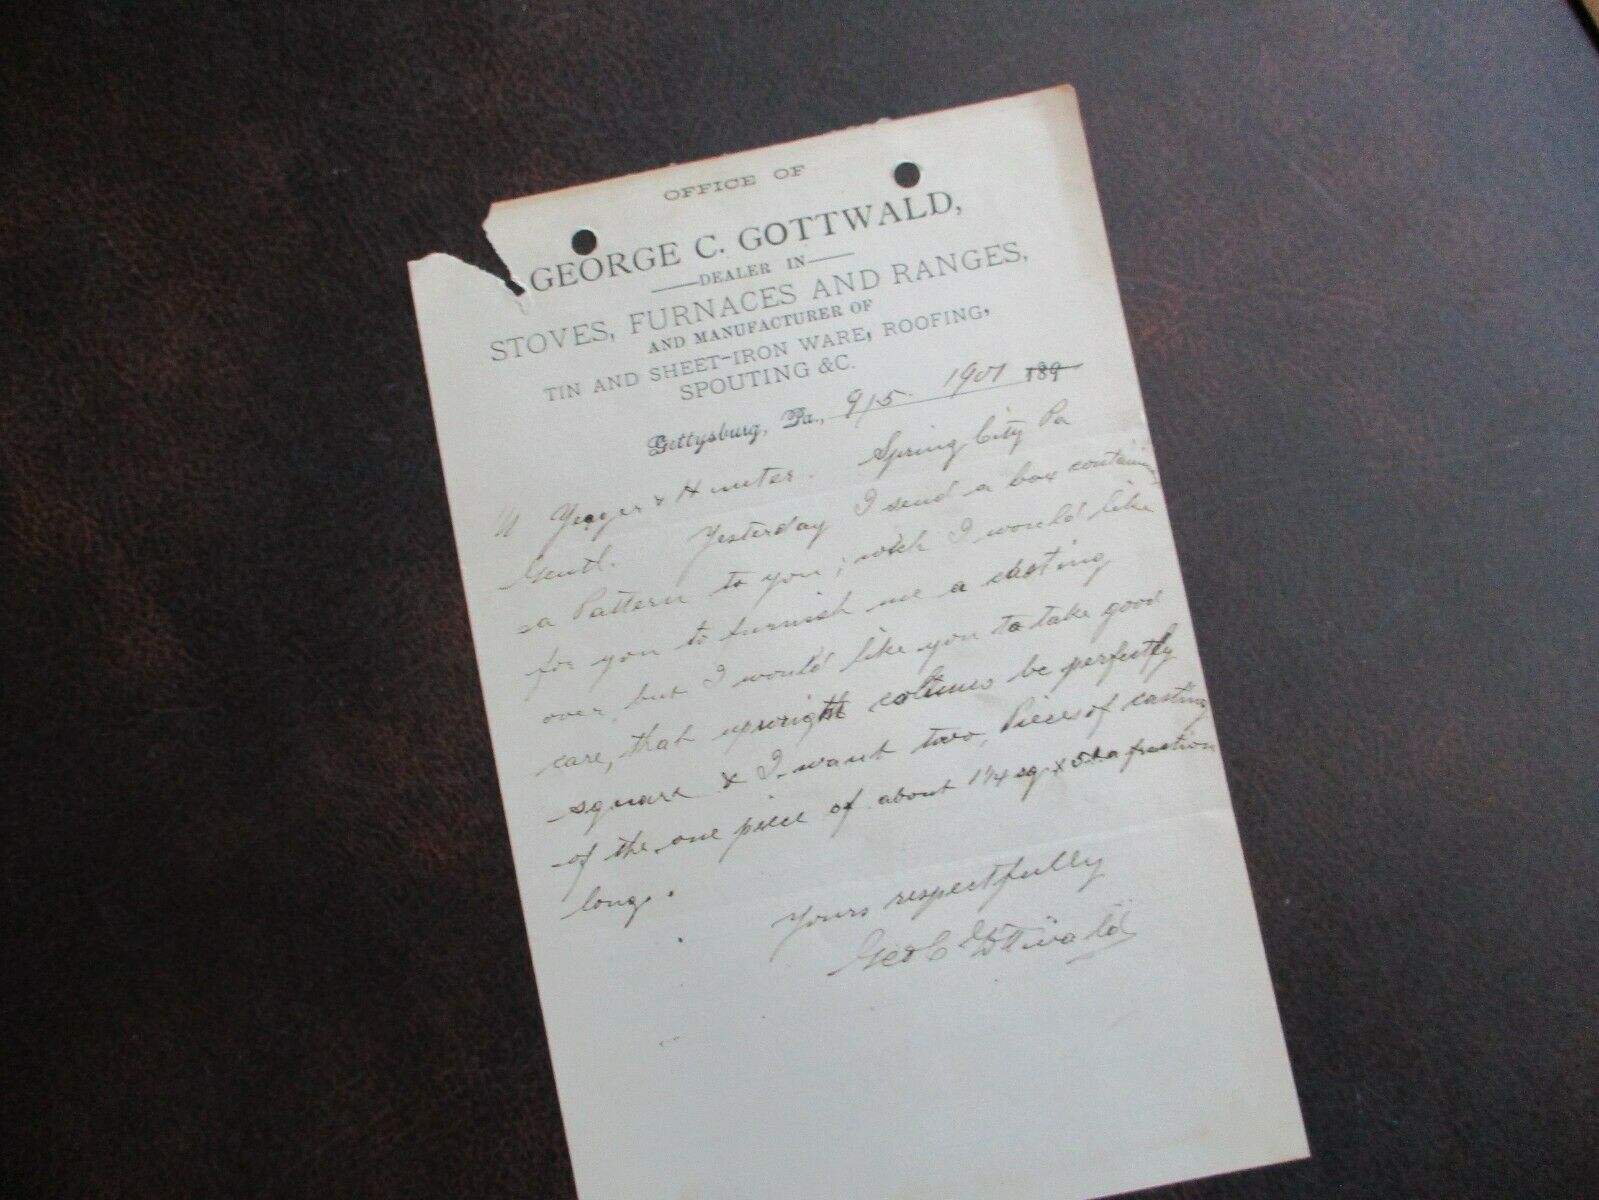 OFFICE OF
GEORGE C. GOTTWALD,
DEALER IN
STOVES, FURNACES AND RANGES,
AND MANUFACTURER OF
TIN AND SHEET-IRON WARE, ROOFING,
SPOUTING &C.
Gettysburg, Pa., 9/5. 1901 189
Yeager & Hunter. Spring City Pa
Gentl. Yesterday I send a box containing
a Pattern to you; wich I would like
for you to furnish me a casting
over, but I would like you to take good
care, that upwright colums be perfectly
square & I want two, Pieces of casting
of the one piece of about 1 1/4 sq x 5 & a fraction
long.
Yours respectfully
Geo C Gottwald